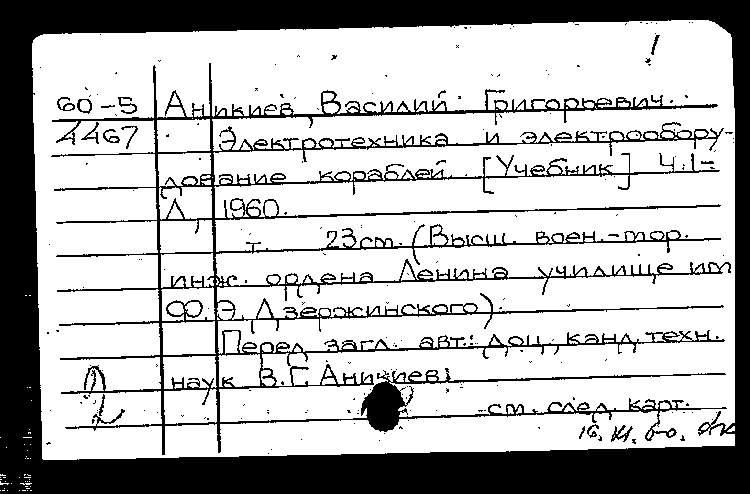 !
60-5 Аникиев, Василий Григорьевич.
4467 Электротехника и электрообору-
дование кораблей. [Учебник] Ч.1-
Л., 1960.
т. 23см. (Высш. воен.-мор.
инж. ордена Ленина училище им
Ф. Э. Дзержинского).
Перед загл. авт.: доц., канд. техн.
наук В.Г. Аникиев.
2
см. след. карт.